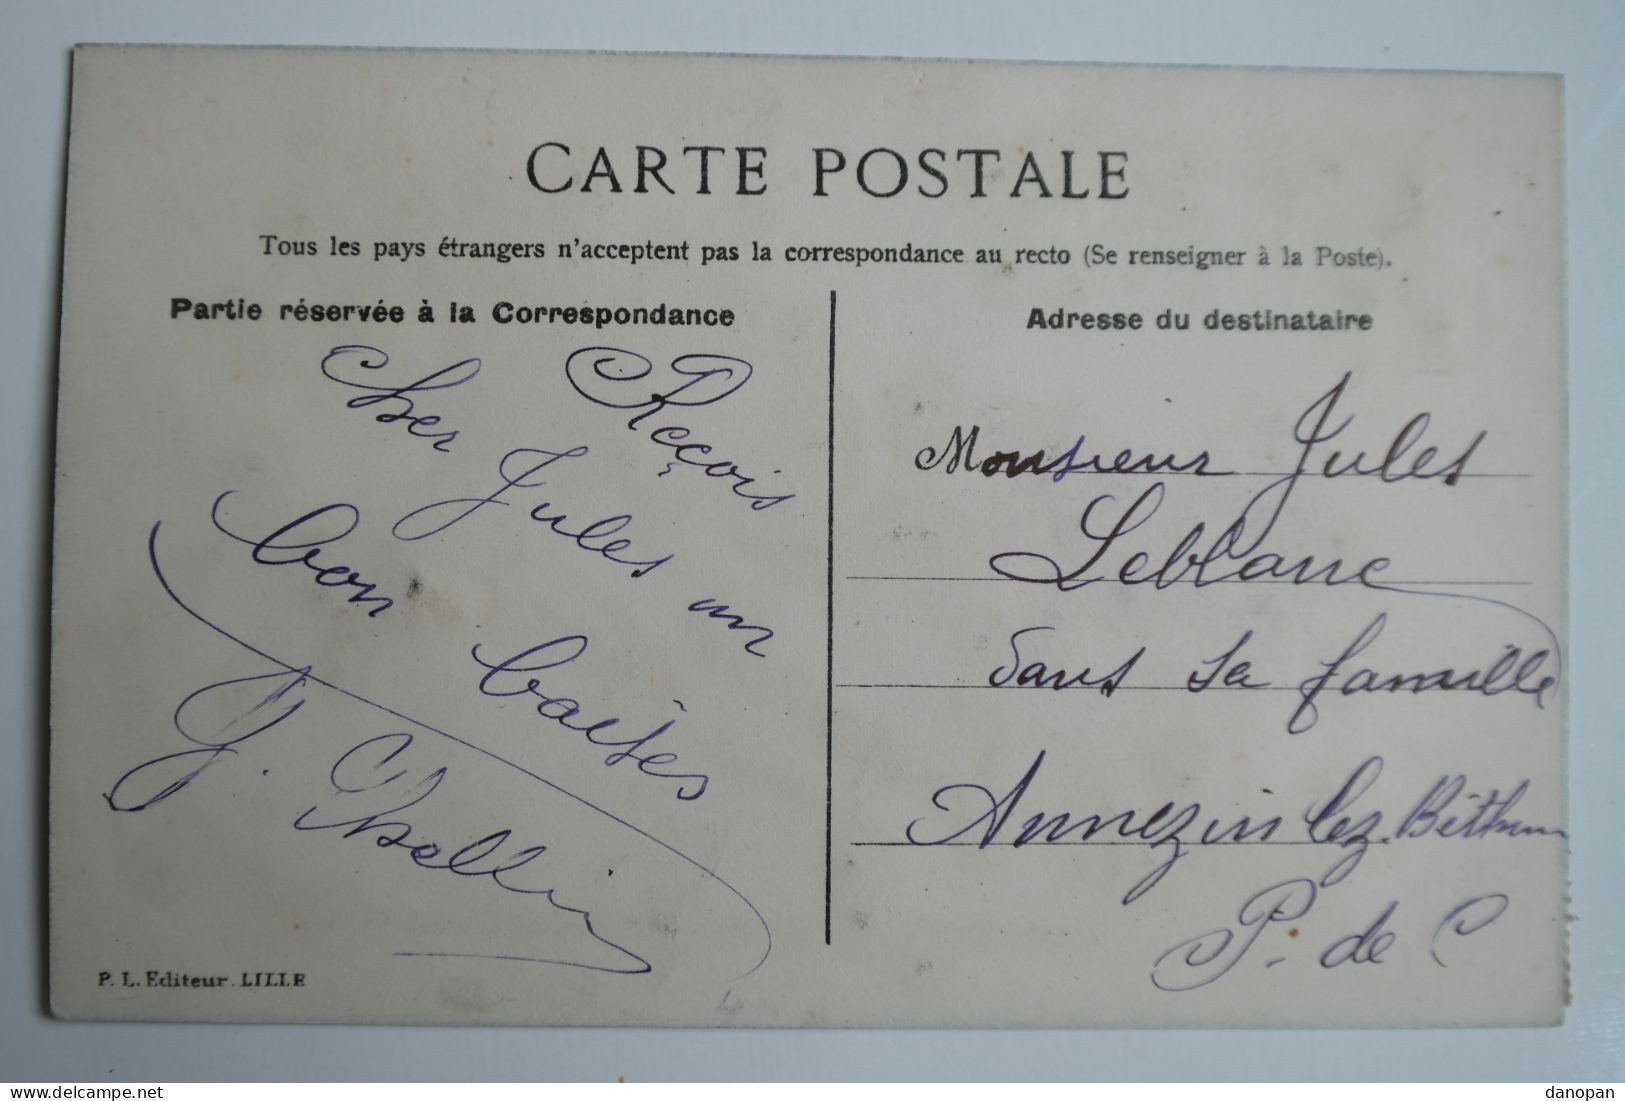 CARTE POSTALE
Tous les pays étrangers n'acceptent pas la correspondance au recto (Se renseigner à la Poste).
Partie réservée à la Correspondance
Cher Jules
Reçois un
bon baisés
G. Thellin
P. L. Editeur. LILLE
Adresse du destinataire
Monsieur Jules
Leblanc
dans sa famille
Annezin lez. Béthune
P. de C
danopan